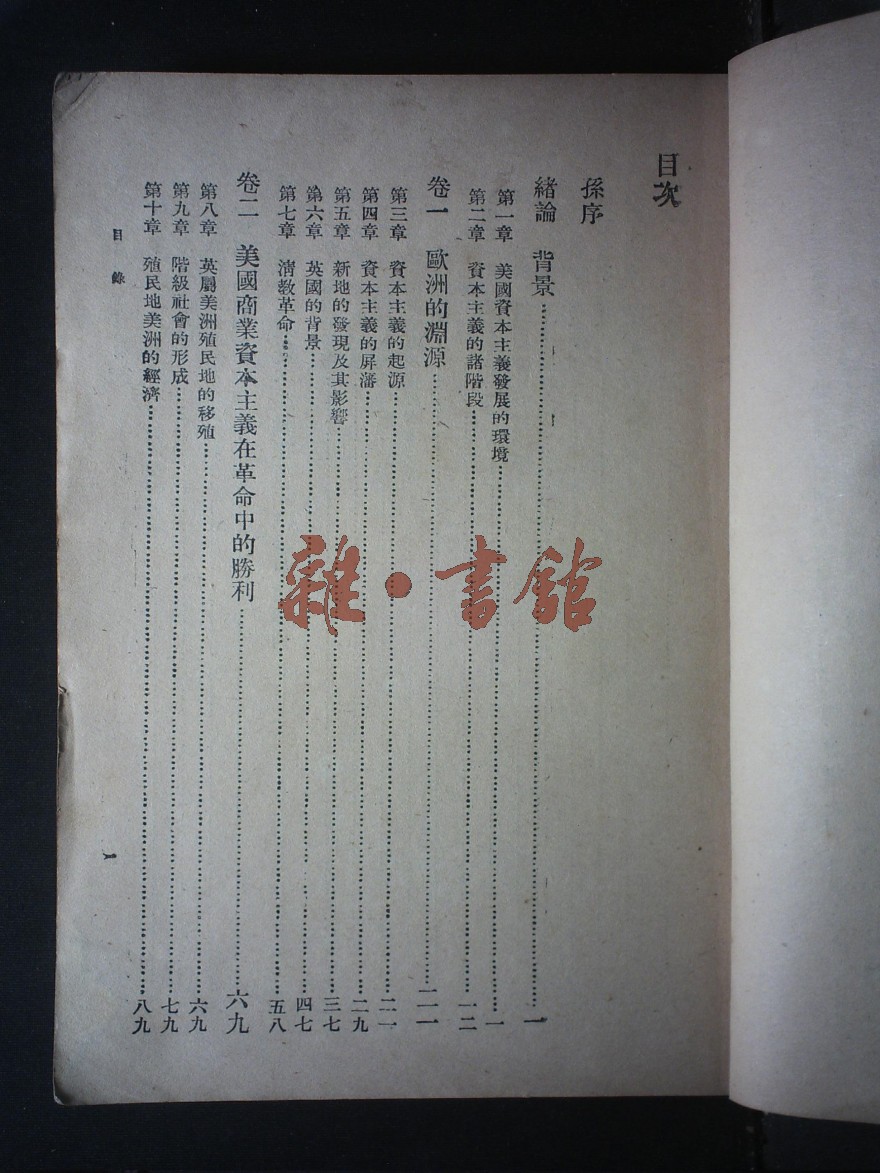 目次
孫序
緒論　背景……一
第一章　美國資本主義發展的環境……一
第二章　資本主義的諸階段……一二
卷一　歐洲的淵源……二一
第三章　資本主義的起源……二一
第四章　資本主義的屏藩……二九
第五章　新地的發現及其影響……三七
第六章　英國的背景……四七
第七章　清教革命……五八
卷二　美國商業資本主義在革命中的勝利……六九
第八章　英屬美洲殖民地的移殖……六九
第九章　階級社會的形成……七九
第十章　殖民地美洲的經濟……八九
目錄
一
雜·書館